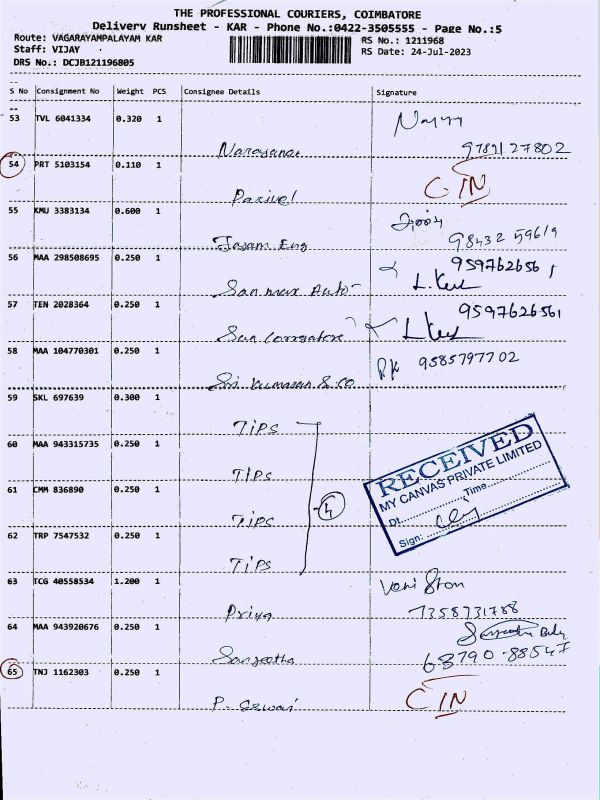 THE PROFESSIONAL COURIERS, COIMBATORE
Delivery Runsheet - KAR - Phone No.:0422-3505555 - Page No.:5
Route: VAGARAYAMPALAYAM KAR
RS No.: 1211968
Staff: VIJAY
RS Date: 24-Jul-2023
DRS No.: DCJB121196805
S No Consignment No Weight PCS Consignee Details Signature
53 TVL 6041334 0.320 1
Narayanan 9789127802
54 PRT 5103154 0.110 1 CIN
55 KMU 3383134 0.600 1
Jayam Eng 98432 59619
56 MAA 298508695 0.250 1 9597626561
San max Auto
57 TEN 2028364 0.250 1 9597626561
San
58 MAA 104770301 0.250 1 9585797702
Sri Kumaran & Co
59 SKL 697639 0.300 1
TIPS
60 MAA 943315735 0.250 1
TIPS
RECEIVED
MY CANVAS PRIVATE LIMITED
Dt. Time
Sign:
61 CMM 836890 0.250 1
TIPS 4
62 TRP 7547532 0.250 1
TIPS
63 TCG 40558534 1.200 1
Priya 7358731788
64 MAA 943920676 0.250 1
Sangeetha 63790-88547
65 TNJ 1162303 0.250 1 CIN
P.